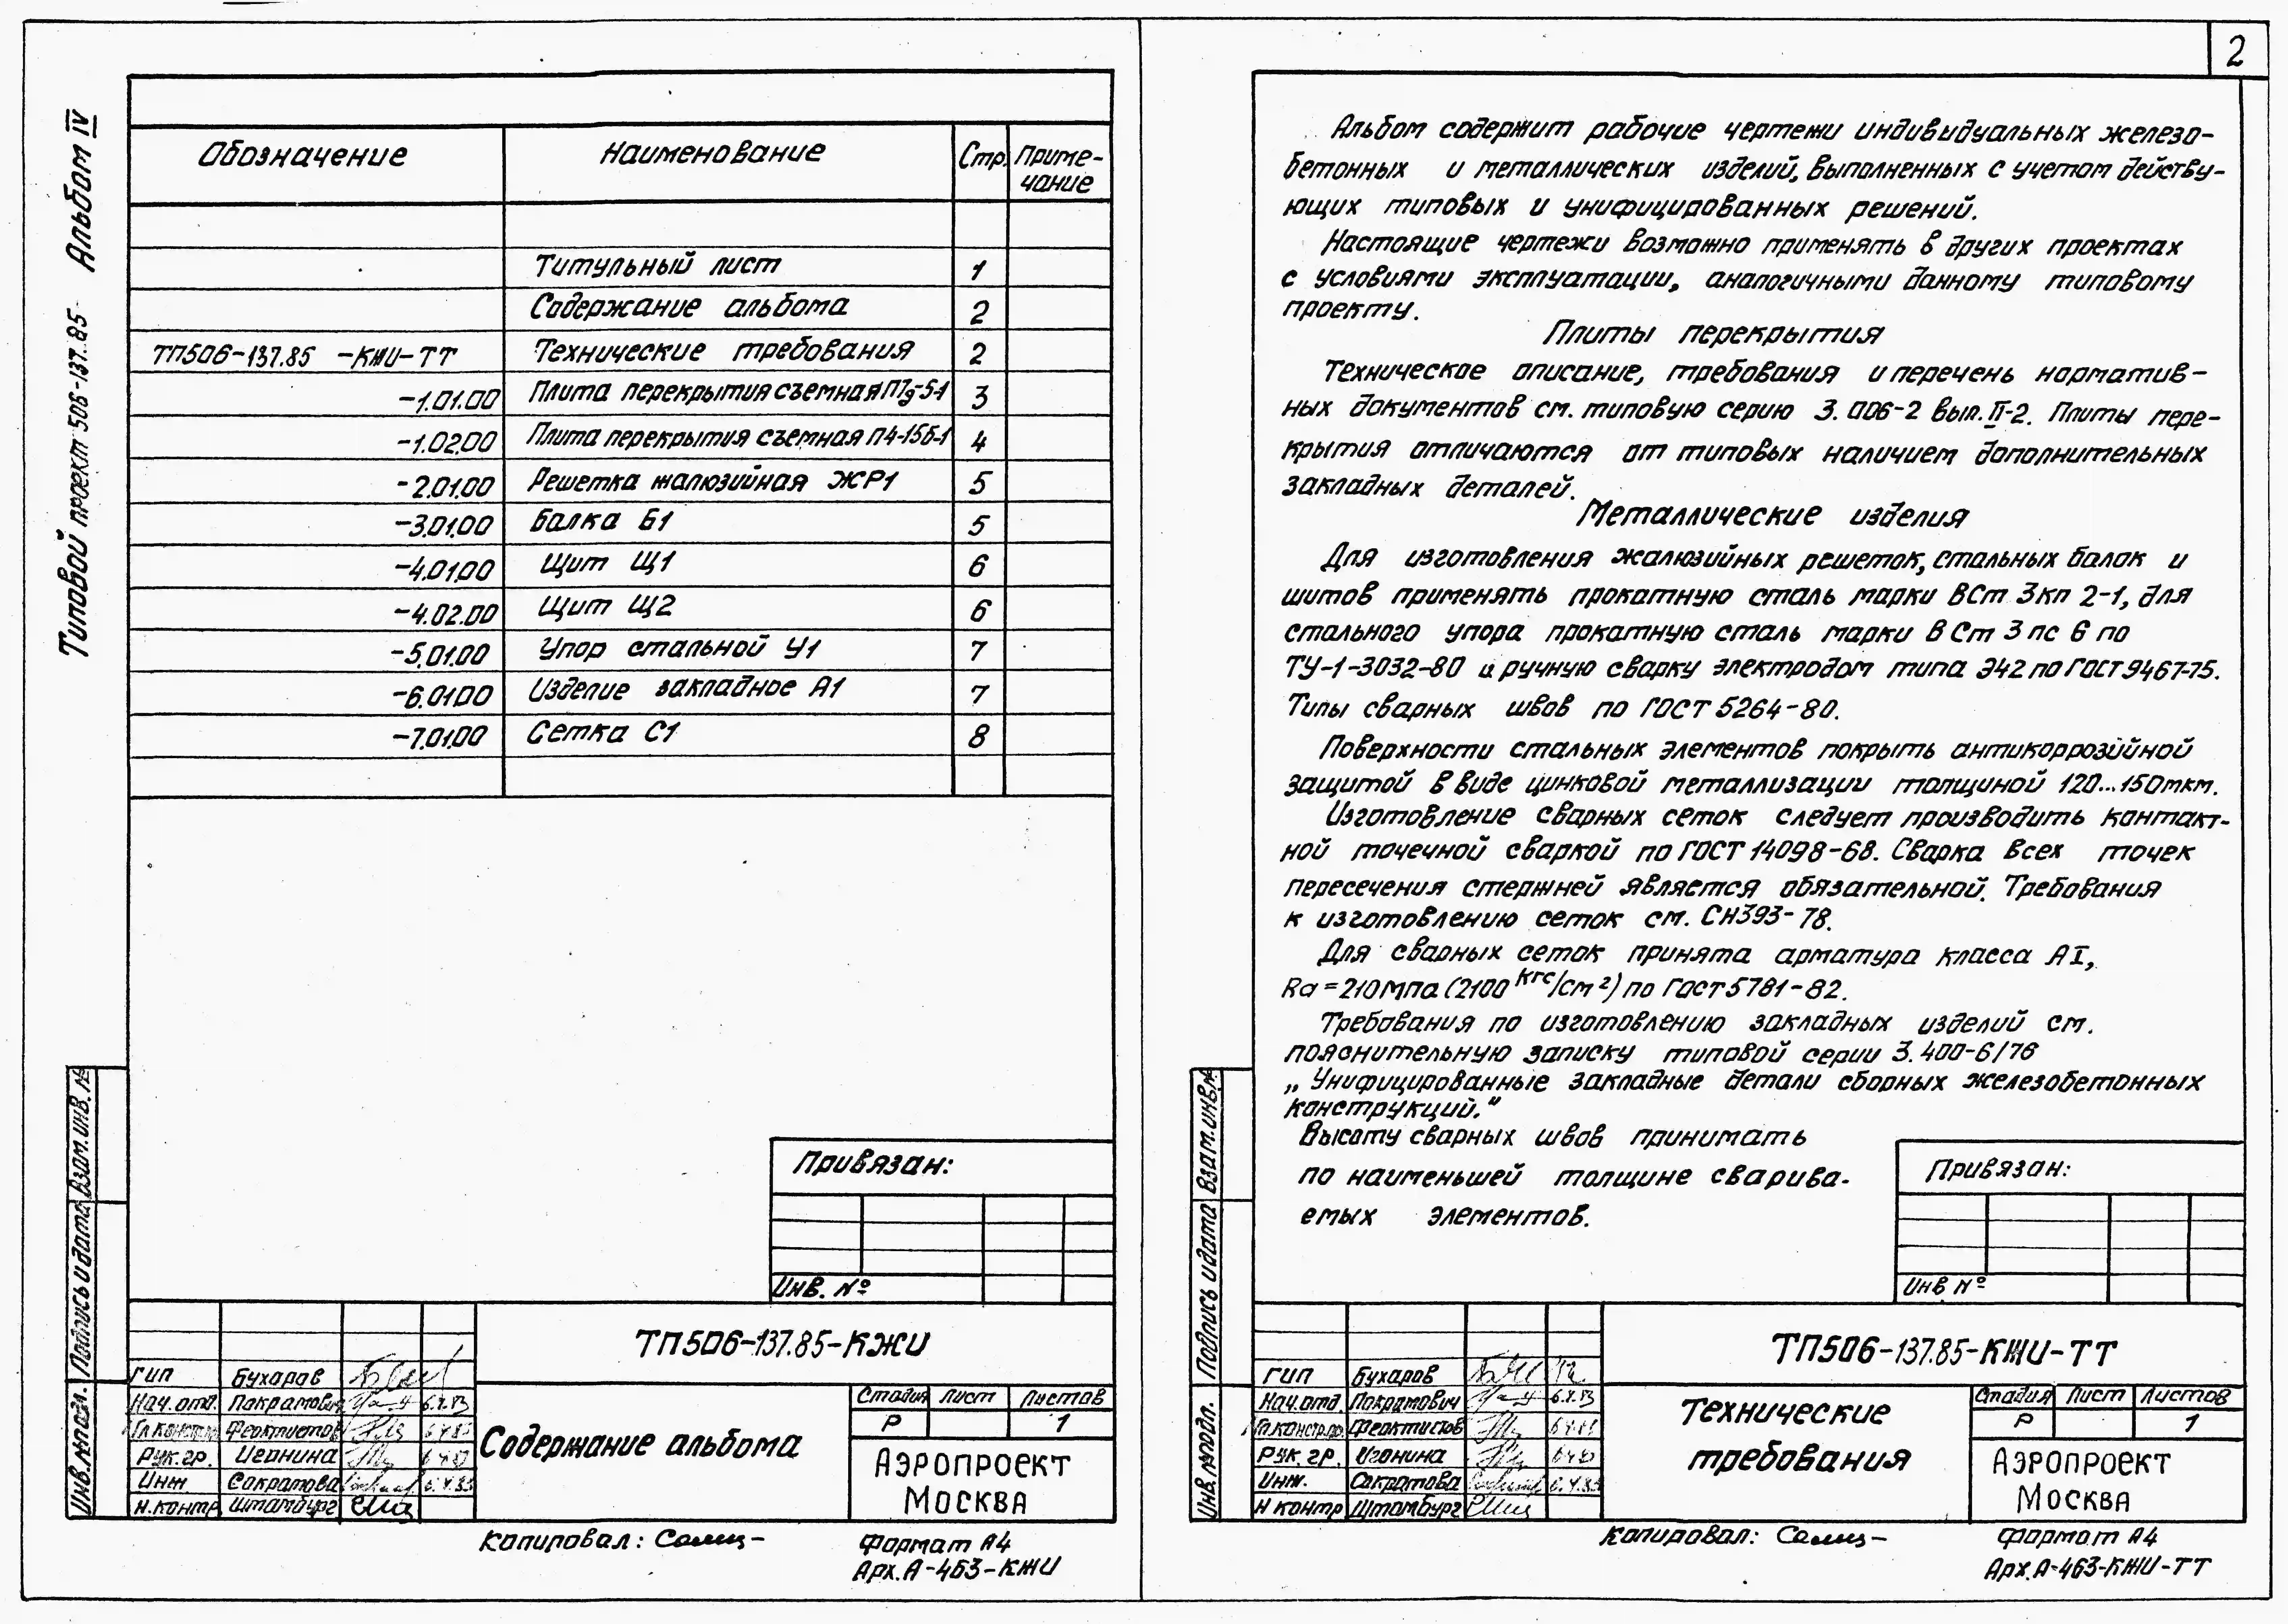 Типовой проект 506-137.85 Альбом IV
Обозначение Наименование Стр. Приме-
чание
Титульный лист 1
Содержание альбома 2
ТП506-137.85 -КЖИ-ТТ Технические требования 2
-1.01.00 Плита перекрытия съемная 3
-1.02.00 Плита перекрытия съемная П4-15б-1 4
-2.01.00 Решетка жалюзийная ЖР1 5
-3.01.00 Балка Б1 5
-4.01.00 Щит Щ1 6
-4.02.00 Щит Щ2 6
-5.01.00 Упор стальной У1 7
-6.01.00 Изделие закладное А1 7
-7.01.00 Сетка С1 8
Привязан:
Инв. №
Взам.инв.№
Подпись и дата
Инв.№подл.
ТП506-137.85-КЖИ
ГИП Бухаров
Нач.отд. Покрамович
Гл.констр. Феоктистов
Рук.гр. Игонина
Инж Сократова
Н.контр Штамбург
Содержание альбома
Стадия Лист Листов
Р 1
Аэропроект
Москва
Копировал:
Формат А4
Арх.А-463-КЖИ
2
Альбом содержит рабочие чертежи индивидуальных железо-
бетонных и металлических изделий, выполненных с учетом действу-
ющих типовых и унифицированных решений.
Настоящие чертежи возможно применять в других проектах
с условиями эксплуатации, аналогичными данному типовому
проекту.
Плиты перекрытия
Техническое описание, требования и перечень норматив-
ных документов см. типовую серию 3.006-2 вып.II-2. Плиты пере-
крытия отличаются от типовых наличием дополнительных
закладных деталей.
Металлические изделия
Для изготовления жалюзийных решеток, стальных балок и
щитов применять прокатную сталь марки ВСт 3кп 2-1, для
стального упора прокатную сталь марки В Ст 3 пс 6 по
ТУ-1-3032-80 и ручную сварку электродом типа Э42 по ГОСТ 9467-75.
Типы сварных швов по ГОСТ 5264-80.
Поверхности стальных элементов покрыть антикоррозийной
защитой в виде цинковой металлизации толщиной 120...150мкм.
Изготовление сварных сеток следует производить контакт-
ной точечной сваркой по ГОСТ 14098-68. Сварка всех точек
пересечения стержней является обязательной. Требования
к изготовлению сеток см. СН393-78.
Для сварных сеток принята арматура класса АI,
Ra=210МПа (2100 кгс/см²) по ГОСТ 5781-82.
Требования по изготовлению закладных изделий см.
пояснительную записку типовой серии 3.400-6/76
„Унифицированные закладные детали сборных железобетонных
конструкций."
Высоту сварных швов принимать
по наименьшей толщине сварива-
емых элементов.
Привязан:
Инв №
Взам.инв.№
Подпись и дата
Инв.№подл.
ТП506-137.85-КЖИ-ТТ
ГИП Бухаров
Нач.отд. Покрамович
Гл.констр. Феоктистов
Рук.гр. Игонина
Инж. Сократова
Н контр Штамбург
Технические
требования
Стадия Лист Листов
Р 1
Аэропроект
Москва
Копировал:
Формат А4
Арх.А-463-КЖИ-ТТ